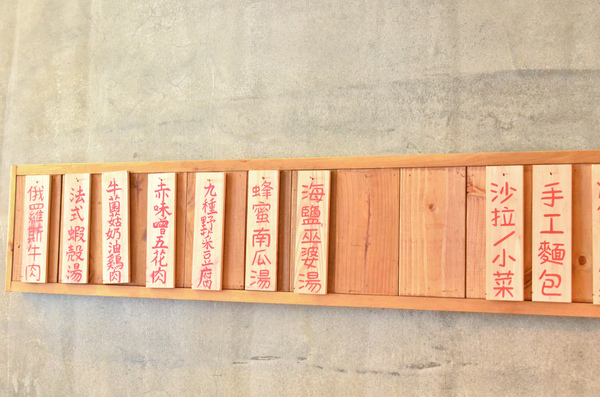 俄羅斯牛肉
法式蝦殼湯
牛菌菇奶油鷄肉
赤味噌五花肉
九種野菜豆腐
蜂蜜南瓜湯
海鹽巫婆湯
沙拉/小菜
手工麵包